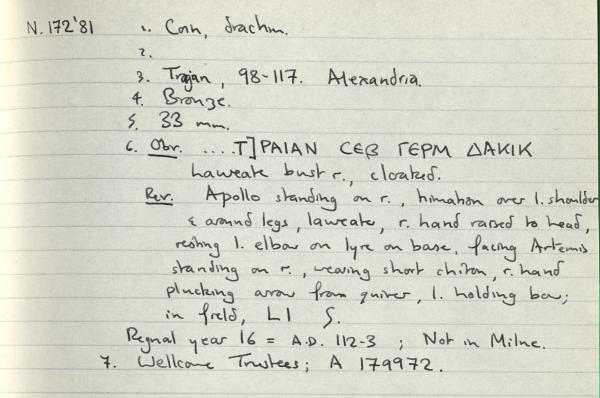 N.172'81 1. Coin, drachm.
2.
3. Trajan, 98-117. Alexandria.
4. Bronze.
5. 33 mm.
6. Obv. ....T]PAIAN CЄB ΓЄPM ΔAKIK
Laureate bust r., cloaked.
Rev. Apollo standing on r., himation over l. shoulder
& around legs, laureate, r. hand raised to head,
resting l. elbow on lyre on base, facing Artemis
standing on r., wearing short chiton, r. hand
plucking arrow from quiver, l. holding bow;
in field, LI S.
Regnal year 16 = A.D. 112-3 ; Not in Milne.
7. Wellcome Trustees; A 179972.